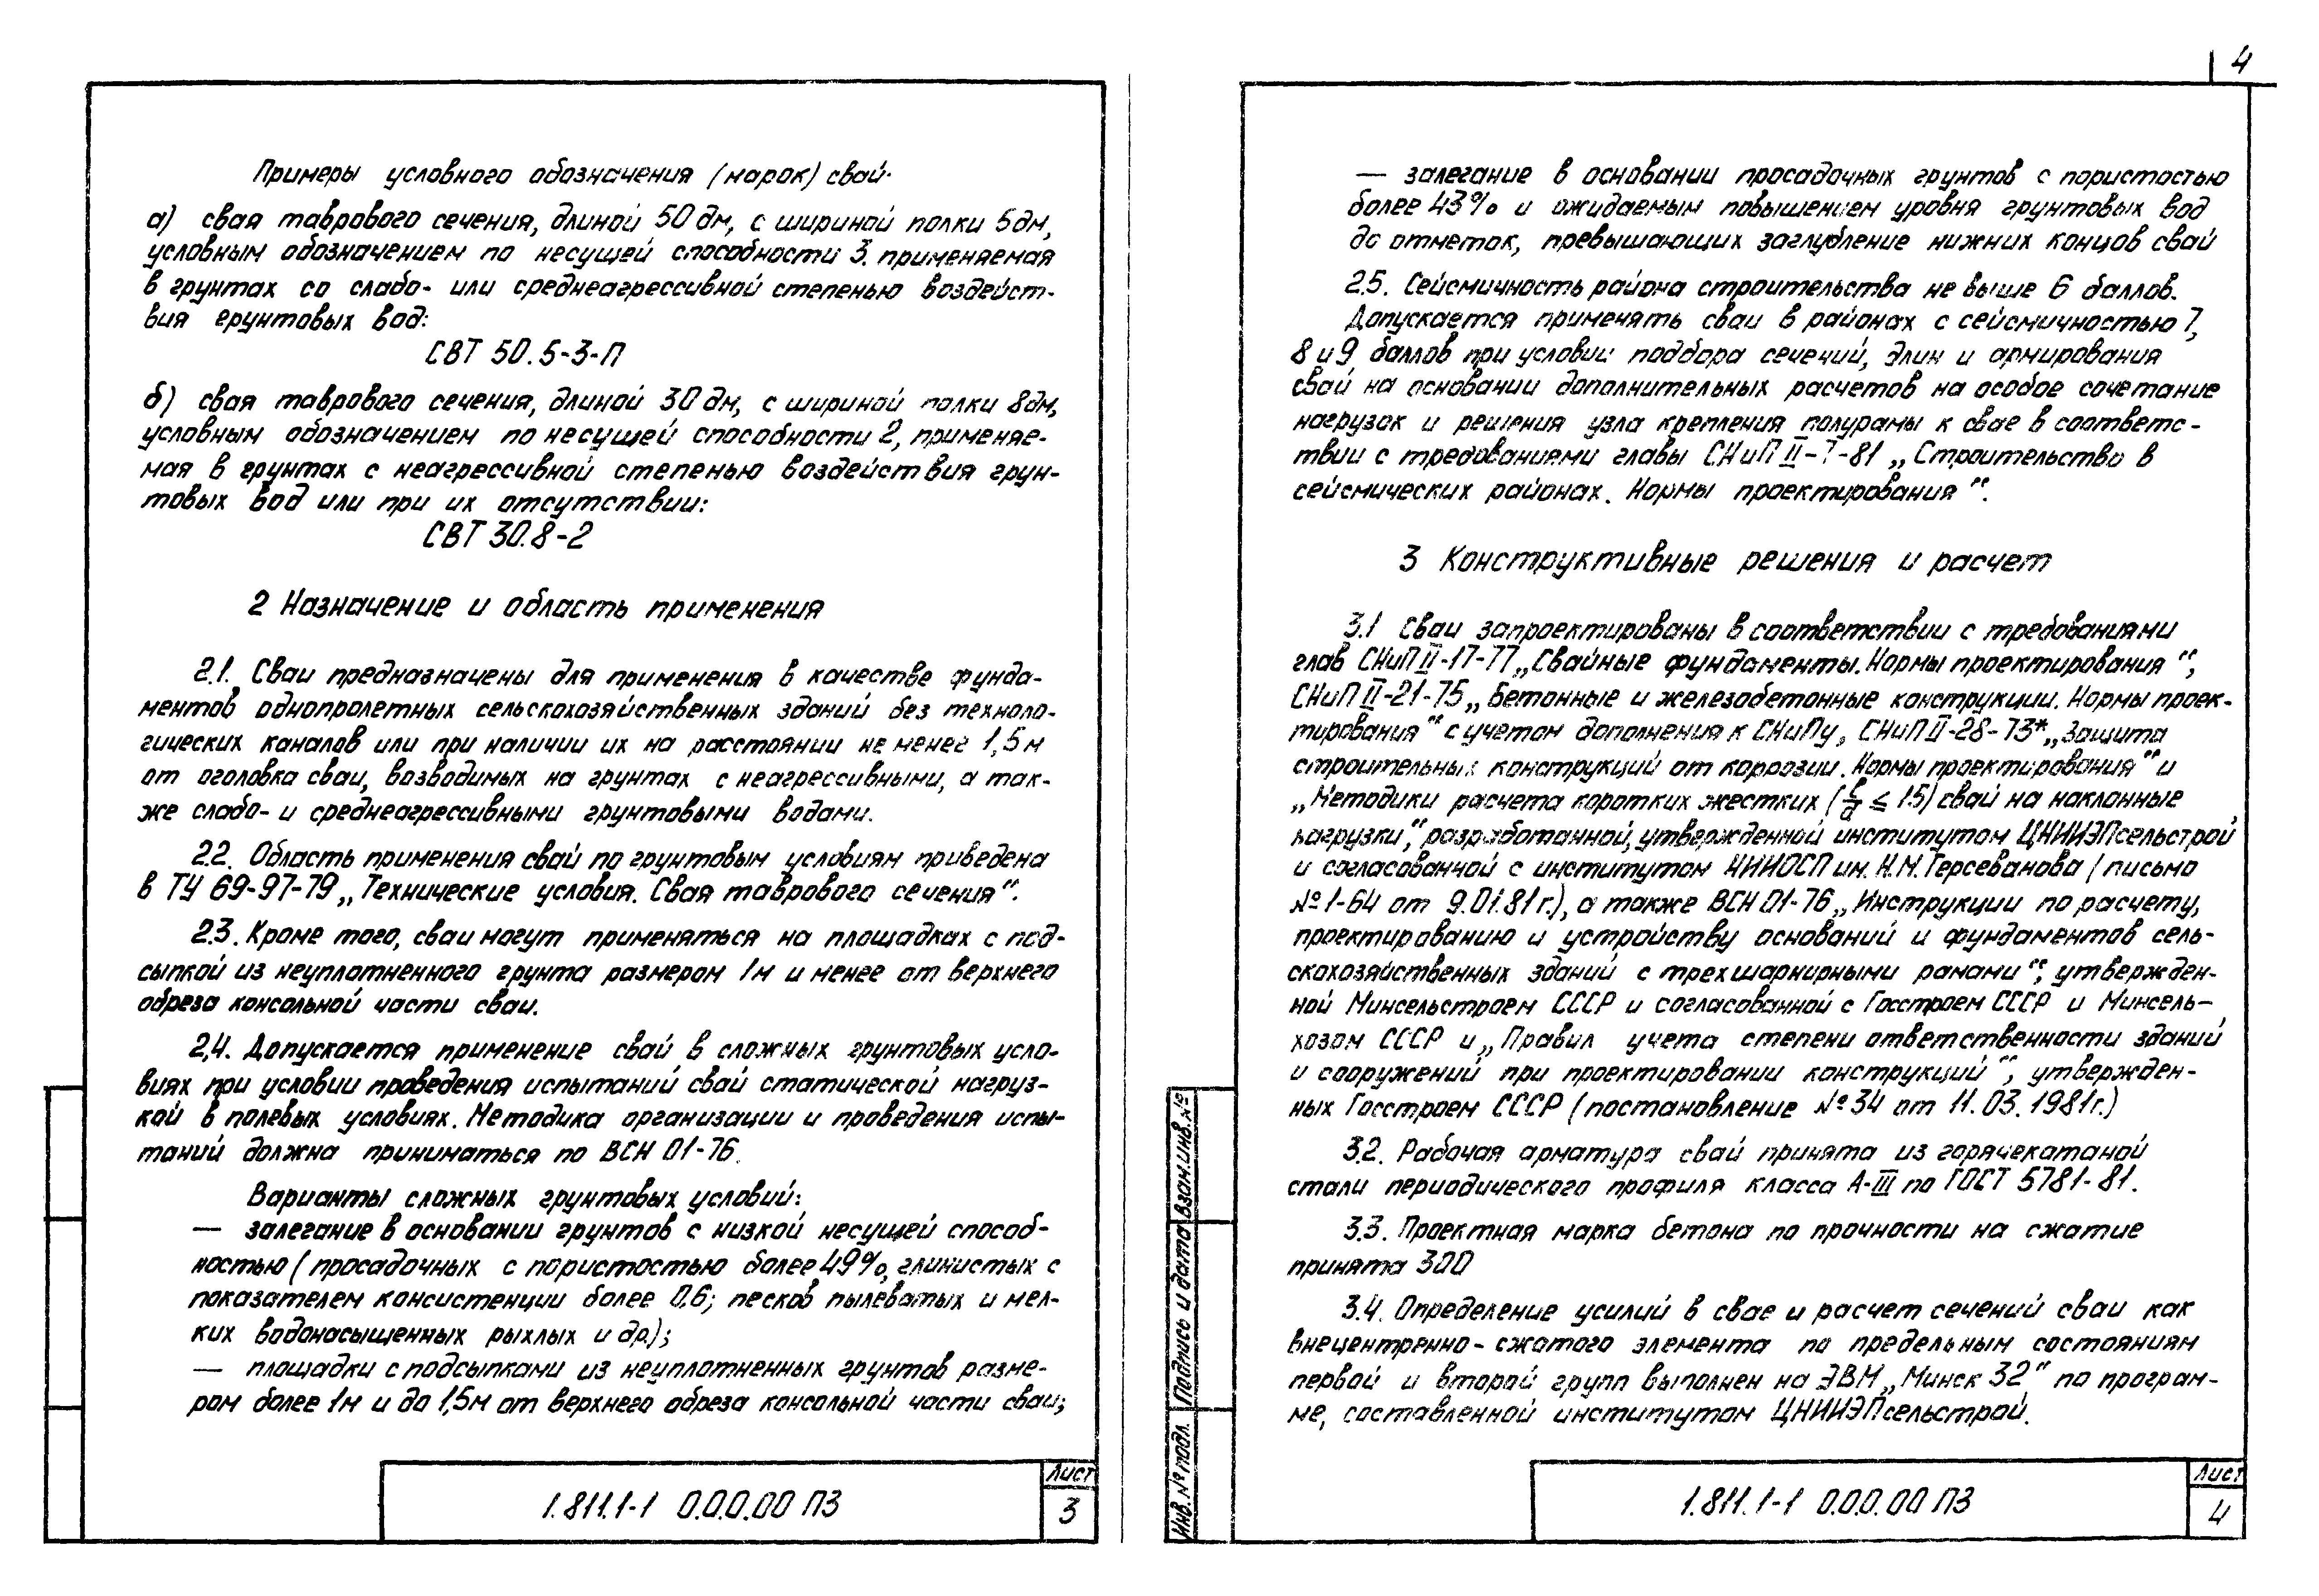 Примеры условного обозначения (марок) свай.
а) свая таврового сечения, длиной 50 дм, с шириной полки 5 дм,
условным обозначением по несущей способности 3, применяемая
в грунтах со слабо- или среднеагрессивной степенью воздейст-
вия грунтовых вод:
СВТ 50.5-3-П
б) свая таврового сечения, длиной 30 дм, с шириной полки 8 дм,
условным обозначением по несущей способности 2, применяе-
мая в грунтах с неагрессивной степенью воздействия грун-
товых вод или при их отсутствии:
СВТ 30.8-2
2 Назначение и область применения
2.1. Сваи предназначены для применения в качестве фунда-
ментов однопролетных сельскохозяйственных зданий без техноло-
гических каналов или при наличии их на расстоянии не менее 1,5 м
от оголовка сваи, возводимых на грунтах с неагрессивными, а так-
же слабо- и среднеагрессивными грунтовыми водами.
2.2. Область применения свай по грунтовым условиям приведена
в ТУ 69-97-79 „Технические условия. Свая таврового сечения“.
2.3. Кроме того, сваи могут применяться на площадках с под-
сыпкой из неуплотненного грунта размером 1м и менее от верхнего
обреза консольной части сваи.
2,4. Допускается применение свай в сложных грунтовых усло-
виях при условии проведения испытаний свай статической нагруз-
кой в полевых условиях. Методика организации и проведения испы-
таний должна приниматься по ВСН 01-76.
Варианты сложных грунтовых условий:
— залегание в основании грунтов с низкой несущей способ-
ностью (просадочных с пористостью более 49%, глинистых с
показателем консистенции более 0,6; песков пылеватых и мел-
ких водонасыщенных рыхлых и др.);
— площадки с подсыпками из неуплотненных грунтов разме-
ром более 1м и до 1,5м от верхнего обреза консольной части сваи;
1.811.1-1 0.0.0.00 ПЗ
Лист
3
4
— залегание в основании просадочных грунтов с пористостью
более 43% и ожидаемым повышением уровня грунтовых вод
до отметок, превышающих заглубление нижних концов свай
2.5. Сейсмичность района строительства не выше 6 баллов.
Допускается применять сваи в районах с сейсмичностью 7,
8 и 9 баллов при условии подбора сечений, длин и армирования
свай на основании дополнительных расчетов на особое сочетание
нагрузок и решения узла крепления полурамы к свае в соответс-
твии с требованиями главы СНиП II-7-81 „Строительство в
сейсмических районах. Нормы проектирования“.
3 Конструктивные решения и расчет
3.1 Сваи запроектированы в соответствии с требованиями
глав СНиП II-17-77 „Свайные фундаменты. Нормы проектирования“,
СНиП II-21-75 „Бетонные и железобетонные конструкции. Нормы проек-
тирования“ с учетом дополнения к СНиПу, СНиП II-28-73* „Защита
строительных конструкций от коррозии. Нормы проектирования“ и
„Методики расчета коротких жестких (ℓ/d ≤ 15) свай на наклонные
нагрузки“, разработанной, утвержденной институтом ЦНИИЭПсельстрой
и согласованной с институтом НИИОСП им. Н.М. Герсеванова (письмо
№1-64 от 9.01.81 г.), а также ВСН 01-76 „Инструкции по расчету,
проектированию и устройству оснований и фундаментов сель-
скохозяйственных зданий с трехшарнирными рамами“, утвержден-
ной Минсельстроем СССР и согласованной с Госстроем СССР и Минсель-
хозом СССР и „Правил учета степени ответственности зданий
и сооружений при проектировании конструкций“, утвержден-
ных Госстроем СССР (постановление №34 от 11.03.1981г.)
3.2. Рабочая арматура свай принята из горячекатаной
стали периодического профиля класса А-III по ГОСТ 5781-81.
3.3. Проектная марка бетона по прочности на сжатие
принята 300
3.4. Определение усилий в свае и расчет сечений сваи как
внецентренно-сжатого элемента по предельным состояниям
первой и второй групп выполнен на ЭВМ „Минск 32“ по програм-
ме, составленной институтом ЦНИИЭПсельстрой.
Инв. № подл. Подпись и дата Взам. инв. №
1.811.1-1 0.0.0.00 ПЗ
Лист
4